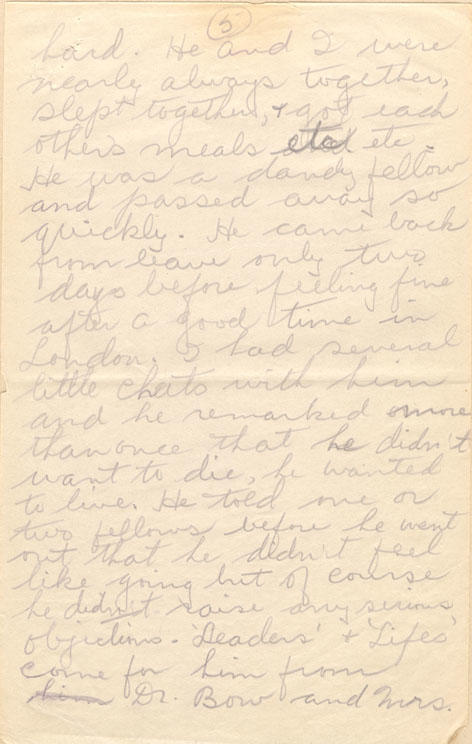 5
hard. He and I were
nearly always together,
slept together, & got each
others meals etc etc.
He was a dandy fellow
and passed away so
quickly. He came back
from leave only two
days before feeling fine
after a good time in
London. I had several
little chats with him
and he remarked more
than once that he didn't
want to die, he wanted
to live. He told one or
two fellows before he went
out that he didn't feel
like going but of course
he didn't raise any serious
objections. 'Leaders' & 'Lifes'
come for him from
him Dr. Bow and Mrs.